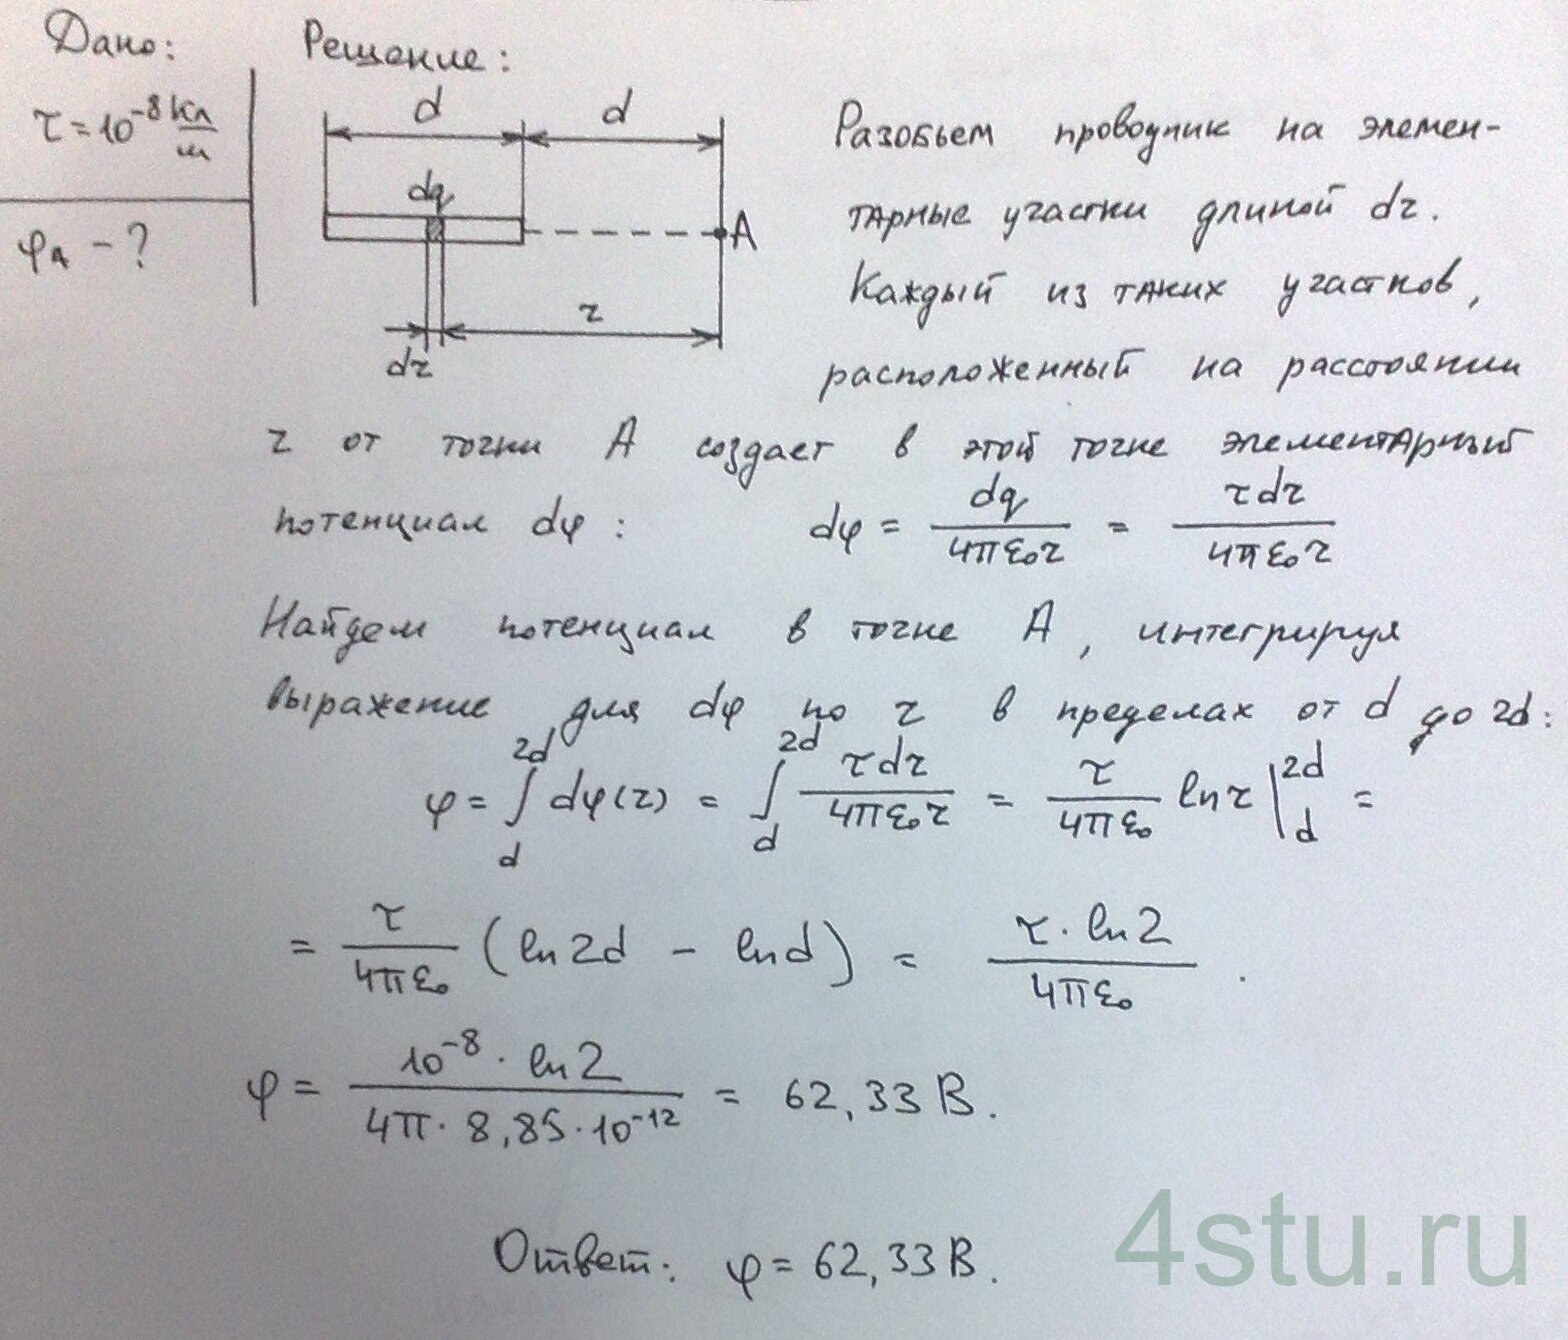 Дано: Решение:
τ = 10⁻⁸ Кл/м
φA - ?
d d
dq
A
r
dr
Разобьем проводник на элемен-
тарные участки длиной dr.
Каждый из таких участков,
расположенный на расстоянии
r от точки A создает в этой точке элементарный
потенциал dφ: dφ = dq/4πε₀r = τdr/4πε₀r
Найдем потенциал в точке A, интегрируя
выражение для dφ по r в пределах от d до 2d:
φ = ∫_d^2d dφ(r) = ∫_d^2d τdr/4πε₀r = τ/4πε₀ ln r |_d^2d =
= τ/4πε₀ (ln 2d - ln d) = τ · ln 2/4πε₀ .
φ = 10⁻⁸ · ln 2/4π · 8,85 · 10⁻¹² = 62,33 В.
Ответ: φ = 62,33 В.
4stu.ru